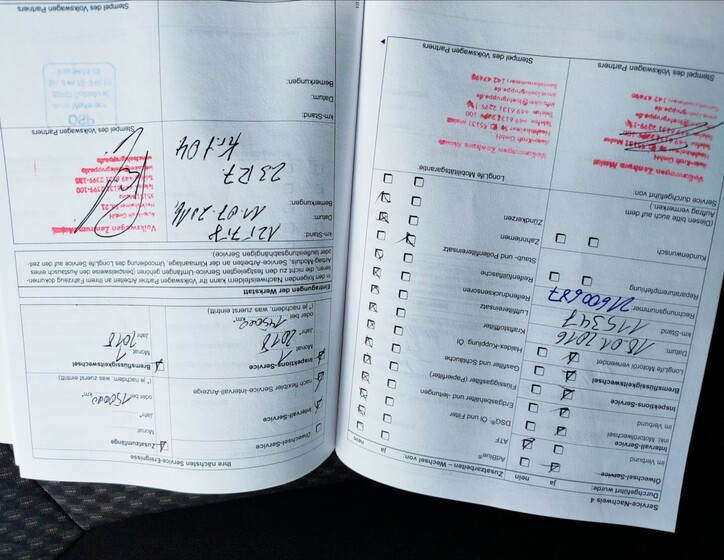 Service-Nachweis 4
Durchgeführt wurde:
ja
nein
Ölwechsel-Service
im Verbund
Intervall-Service
inkl. Motorölwechsel
im Verbund
Inspektions-Service
Bremsflüssigkeitswechsel
LongLife Motoröl verwendet
Datum:
18.01.2016
km-Stand:
115347
Rechnungsnummer:
21600687
Reparaturempfehlung
Kundenwunsch
(Diesen bitte auch auf dem
Auftrag vermerken.)
Service durchgeführt von:
Stempel des Volkswagen Partners
Zusatzarbeiten – Wechsel von:
ja
nein
AdBlue®
ATF
DSG®: Öl und Filter
Erdgasbehälter und -leitungen
Flüssiggasfilter (Papierfilter)
Gasfilter und Schläuche
Haldex-Kupplung Öl
Kraftstofffilter
Luftfiltereinsatz
Reifendruckssensoren
Reifenfüllflasche
Staub- und Pollenfiltereinsatz
Zahnriemen
Zündkerzen
LongLife Mobilitätsgarantie
Volkswagen Zentrum Mainz
Stempel des Volkswagen Partners
Ihre nächsten Service-Ereignisse
Ölwechsel-Service
Intervall-Service
nach flexibler Service-Intervall-Anzeige
Inspektions-Service
Monat 1
Jahr* 2018
oder bei 145000 km*
(* je nachdem, was zuerst eintritt)
Zusatzumfänge
Monat
Jahr*
oder bei 150000 km*
(* je nachdem, was zuerst eintritt)
Bremsflüssigkeitswechsel
Monat 1
Jahr 2018
Eintragungen der Werkstatt
In den folgenden Nachweisfeldern kann Ihr Volkswagen Partner Arbeiten an Ihrem Fahrzeug dokumen-
tieren, die nicht zu den festgelegten Service-Umfängen gehören (beispielsweise den Austausch eines
Airbag Moduls, Service-Arbeiten an der Klimaanlage, Umcodierung des LongLife Service auf den zeit-
oder laufleistungsabhängigen Service).
km-Stand:
Datum: 11.07.2016
Bemerkungen:
23R7
Volkswagen Zentrum Mainz
Stempel des Volkswagen Partners
km-Stand:
Datum:
Bemerkungen:
Stempel des Volkswagen Partners